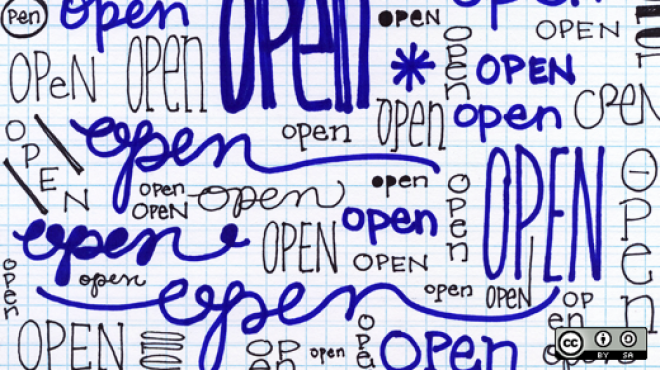 Pen
open
open
open
open
OPEN
OPeN
OPen
open
OPEN
open
open
OPEN
open
open
open
OPEN
OPEN
open
open
open
open
OPEN
open
OPEN
open
open
OPEN
OPEN
open
open
open
open
OPEN
open
OPEN
open
open
open
open
cc BY SA